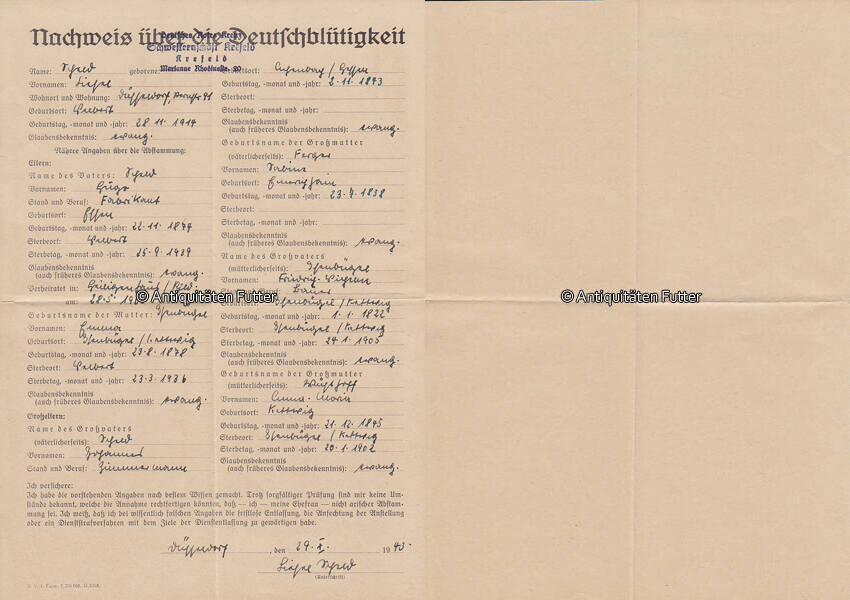 Nachweis über die Deutschblütigkeit
Deutsches Rotes Kreuz
Schwesternschaft Krefeld
Krefeld
Marianne Rhodiusstr. 20
Name: Scheld geborene:
Vornamen: Liesel
Wohnort und Wohnung: Düsseldorf,
Geburtsort: Velbert
Geburtstag, -monat und -jahr: 28.11.1914
Glaubensbekenntnis: evang.
Nähere Angaben über die Abstammung:
Eltern:
Name des Vaters: Scheld
Vornamen: Hugo
Stand und Beruf: Fabrikant
Geburtsort: Essen
Geburtstag, -monat und -jahr: 22.11.1874
Sterbeort: Velbert
Sterbetag, -monat und -jahr: 25.9.1939
Glaubensbekenntnis
(auch früheres Glaubensbekenntnis): evang.
Verheiratet in: Heiligenhaus /
am: 28.5.
Geburtsname der Mutter: Isenbügel
Vornamen: Emma
Geburtsort: Isenbügel/Kettwig
Geburtstag, -monat und -jahr: 23.8.1878
Sterbeort: Velbert
Sterbetag, -monat und -jahr: 23.3.1936
Glaubensbekenntnis
(auch früheres Glaubensbekenntnis): evang.
Großeltern:
Name des Großvaters
(väterlicherseits): Scheld
Vornamen: Johannes
Stand und Beruf: Zimmermann
Geburtsort: / Hessen
Geburtstag, -monat und -jahr: 2.11.1843
Sterbeort:
Sterbetag, -monat und -jahr:
Glaubensbekenntnis
(auch früheres Glaubensbekenntnis): evang.
Geburtsname der Großmutter
(väterlicherseits): Ferger
Vornamen: Sabine
Geburtsort:
Geburtstag, -monat und -jahr: 23.7.1838
Sterbeort:
Sterbetag, -monat und -jahr:
Glaubensbekenntnis
(auch früheres Glaubensbekenntnis): evang.
Name des Großvaters
(mütterlicherseits): Isenbügel
Vornamen: Friedrich-Wilhelm
Bauer
Isenbügel/Kettwig
Geburtstag, -monat und -jahr: 1.1.1822
Sterbeort: Isenbügel/Kettwig
Sterbetag, -monat und -jahr: 24.1.1905
Glaubensbekenntnis
(auch früheres Glaubensbekenntnis): evang.
Geburtsname der Großmutter
(mütterlicherseits):
Vornamen: Anna-Maria
Geburtsort: Kettwig
Geburtstag, -monat und -jahr: 21.12.1845
Sterbeort: Isenbügel/Kettwig
Sterbetag, -monat und -jahr: 20.1.1902
Glaubensbekenntnis
(auch früheres Glaubensbekenntnis): evang.
Ich versichere:
Ich habe die vorstehenden Angaben nach bestem Wissen gemacht. Trotz sorgfältiger Prüfung sind mir keine Um-
stände bekannt, welche die Annahme rechtfertigen könnten, daß — ich — meine Ehefrau — nicht arischer Abstam-
mung sei. Ich weiß, daß ich bei wissentlich falschen Angaben die fristlose Entlassung, die Anfechtung der Anstellung
oder ein Dienststrafverfahren mit dem Ziele der Dienstentlassung zu gewärtigen habe.
Düsseldorf, den 29. X. 1943.
Liesel Scheld
(Unterschrift)
© Antiquitäten Futter
© Antiquitäten Futter